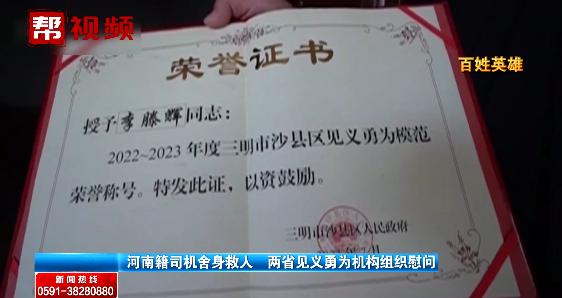 帮视频
百姓英雄
荣誉证书
授予李滕辉同志：
2022~2023年度三明市沙县区见义勇为模范
荣誉称号。特发此证，以资鼓励。
三明市沙县区人民政府
河南籍司机舍身救人 两省见义勇为机构组织慰问
新闻热线
0591-38280880